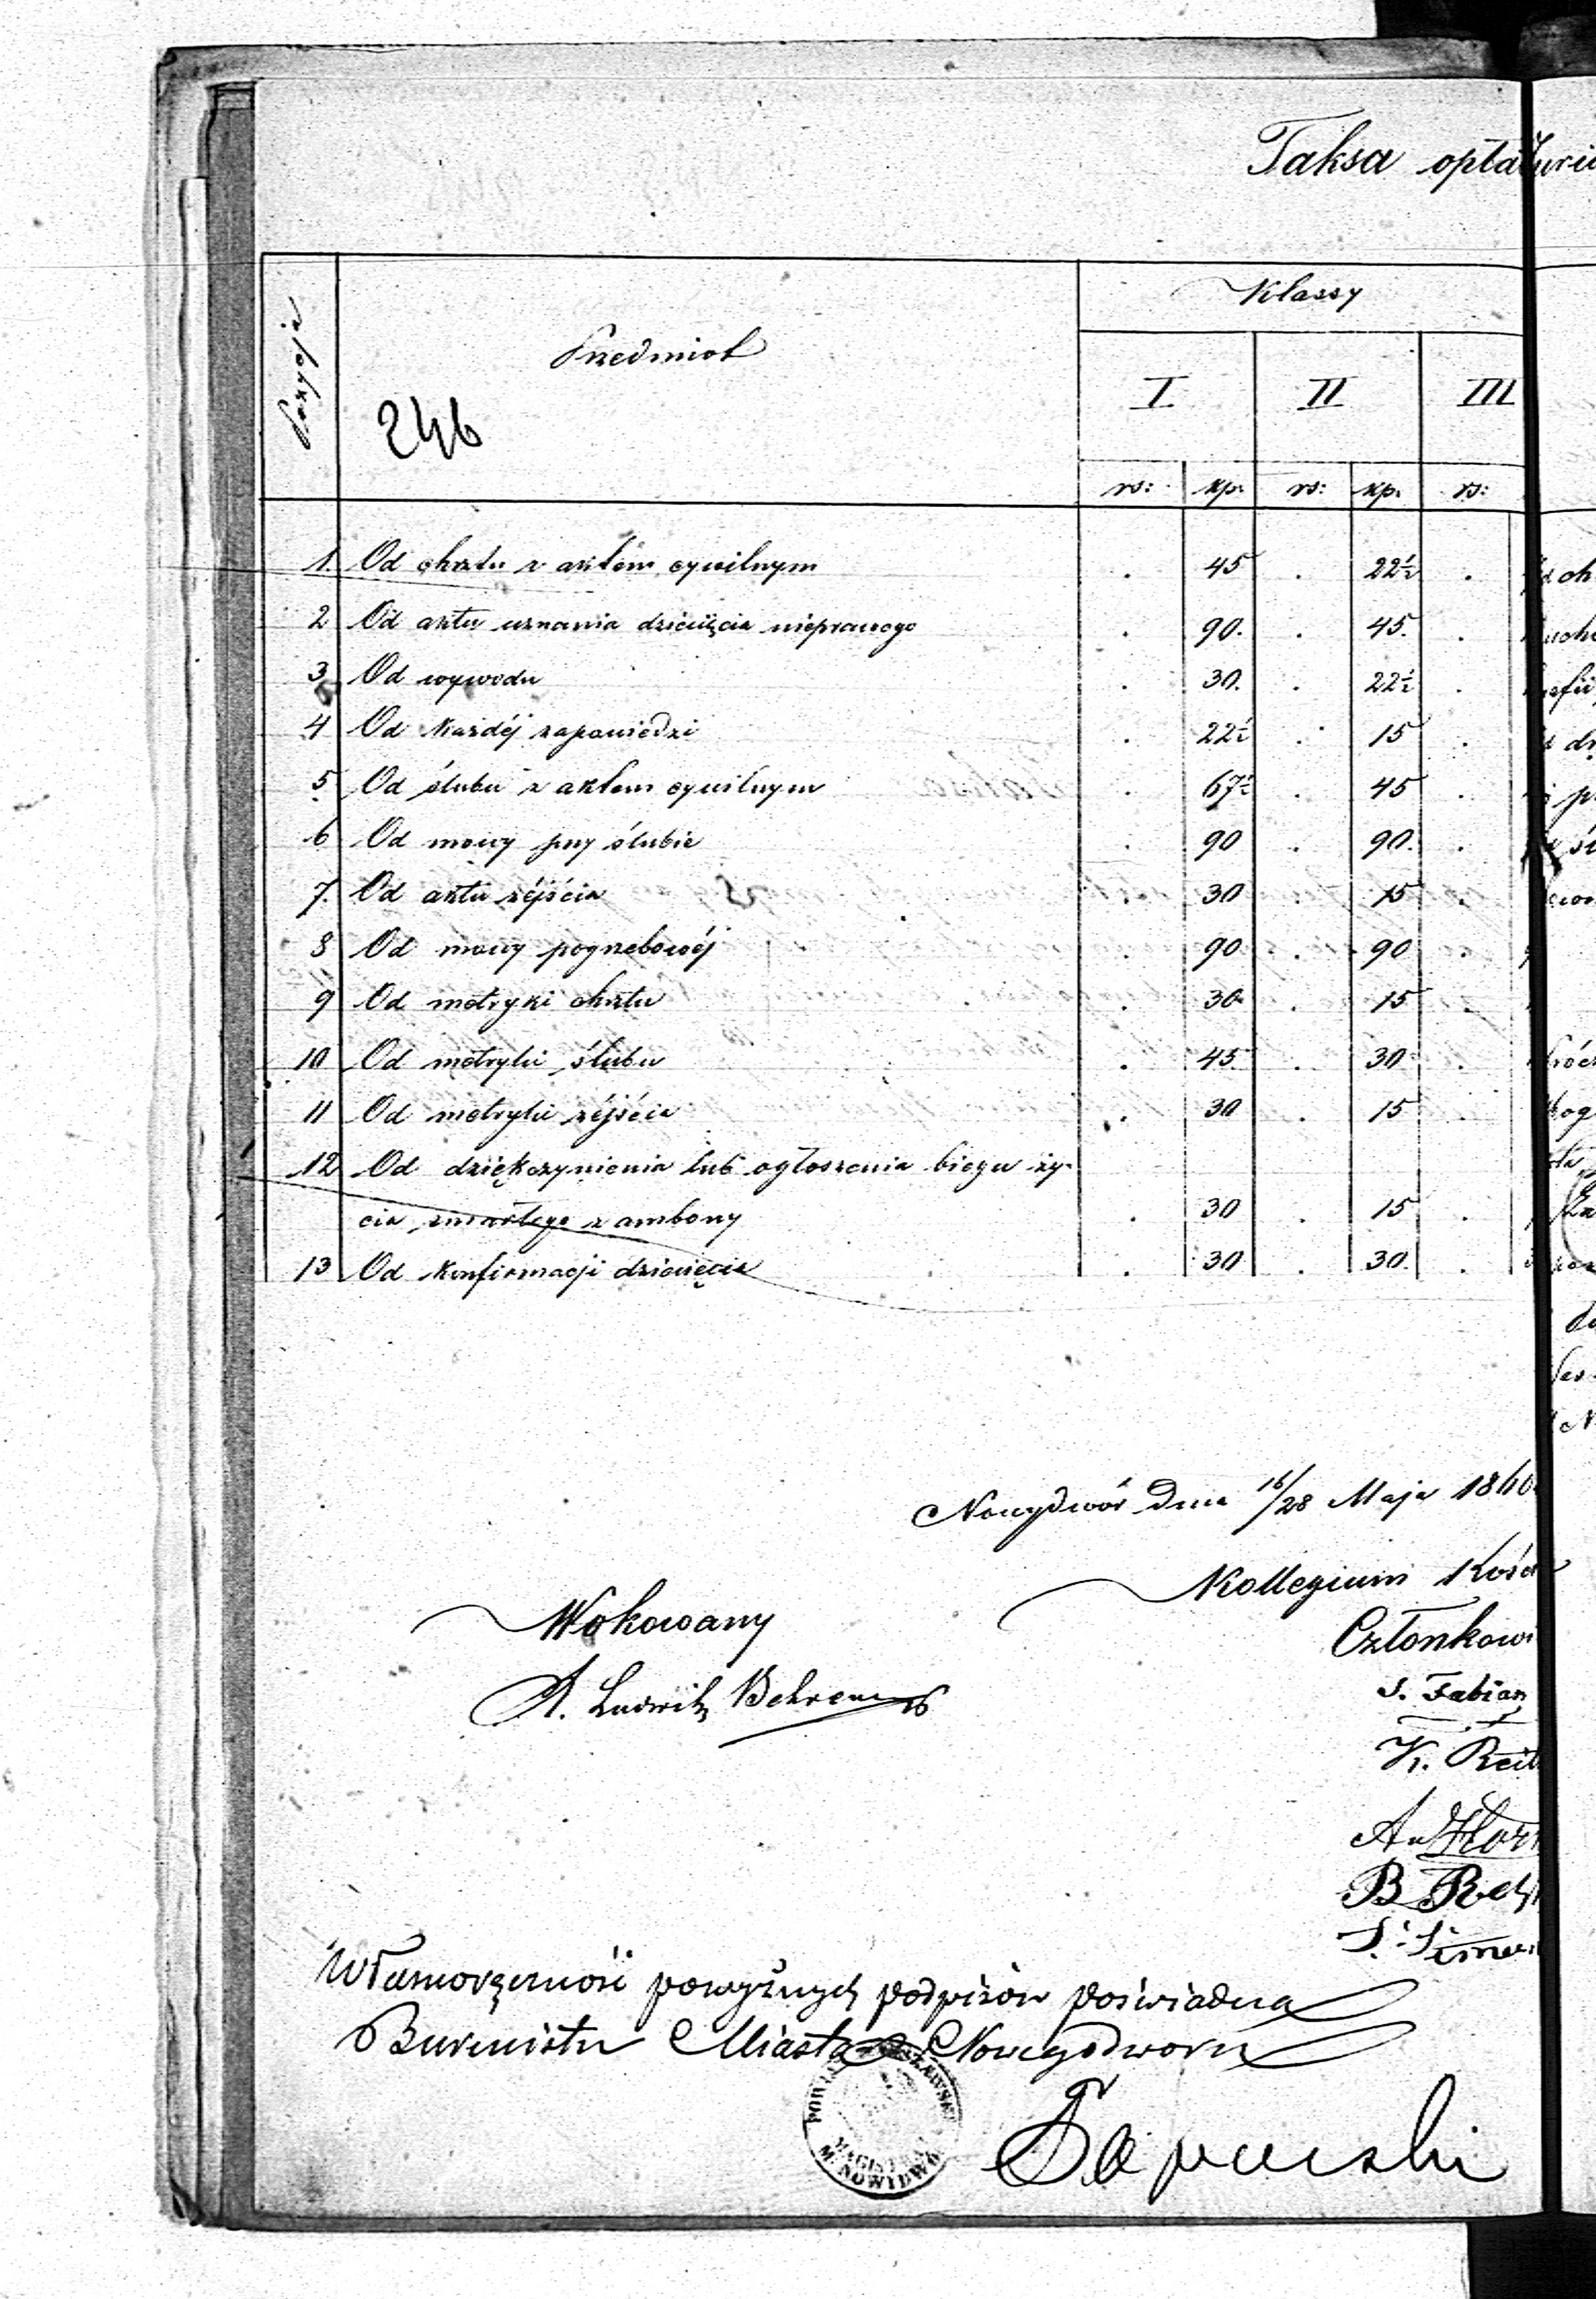 Taksa opłat
Pozycja
Przedmiot
Klassy
246
I II III
rs: kp. rs: kp. rs:
1. Od chrztu z aktem cywilnym . 45 . 22½ .
2 Od aktu uznania dziecięcia nieprawego . 90. . 45. .
3 Od wywodu . 30. . 22½ .
4 Od każdéj zapowiedzi . 22½ . 15 .
5 Od ślubu z aktem cywilnym . 67½ . 45 .
6 Od mowy przy ślubie . 90 . 90. .
7. Od aktu zéjścia . 30 . 15 .
8 Od mowy pogrzebowéj . 90 . 90 .
9 Od metryki chrztu . 30 . 15 .
10 Od metryki ślubu . 45 . 30 .
11 Od metryki zéjścia . 30 . 15 .
12 Od dziękczynienia lub ogłoszenia biegu ży-
cia zmarłego z ambony . 30 . 15 .
13 Od konfirmacji dziecięcia . 30 . 30. .
Nowydwór dnia 16/28 Maja 1860
Kollegium Kośc
Wokowany
Członkowi
A. Ludwik Behrens
S. Fabian
K.
A.
B
S.
Własnoręczność powyższych podpisów poświadcza
Burmistrz Miasta Nowegodworu
MAGIS
M. NOWIDWÓ